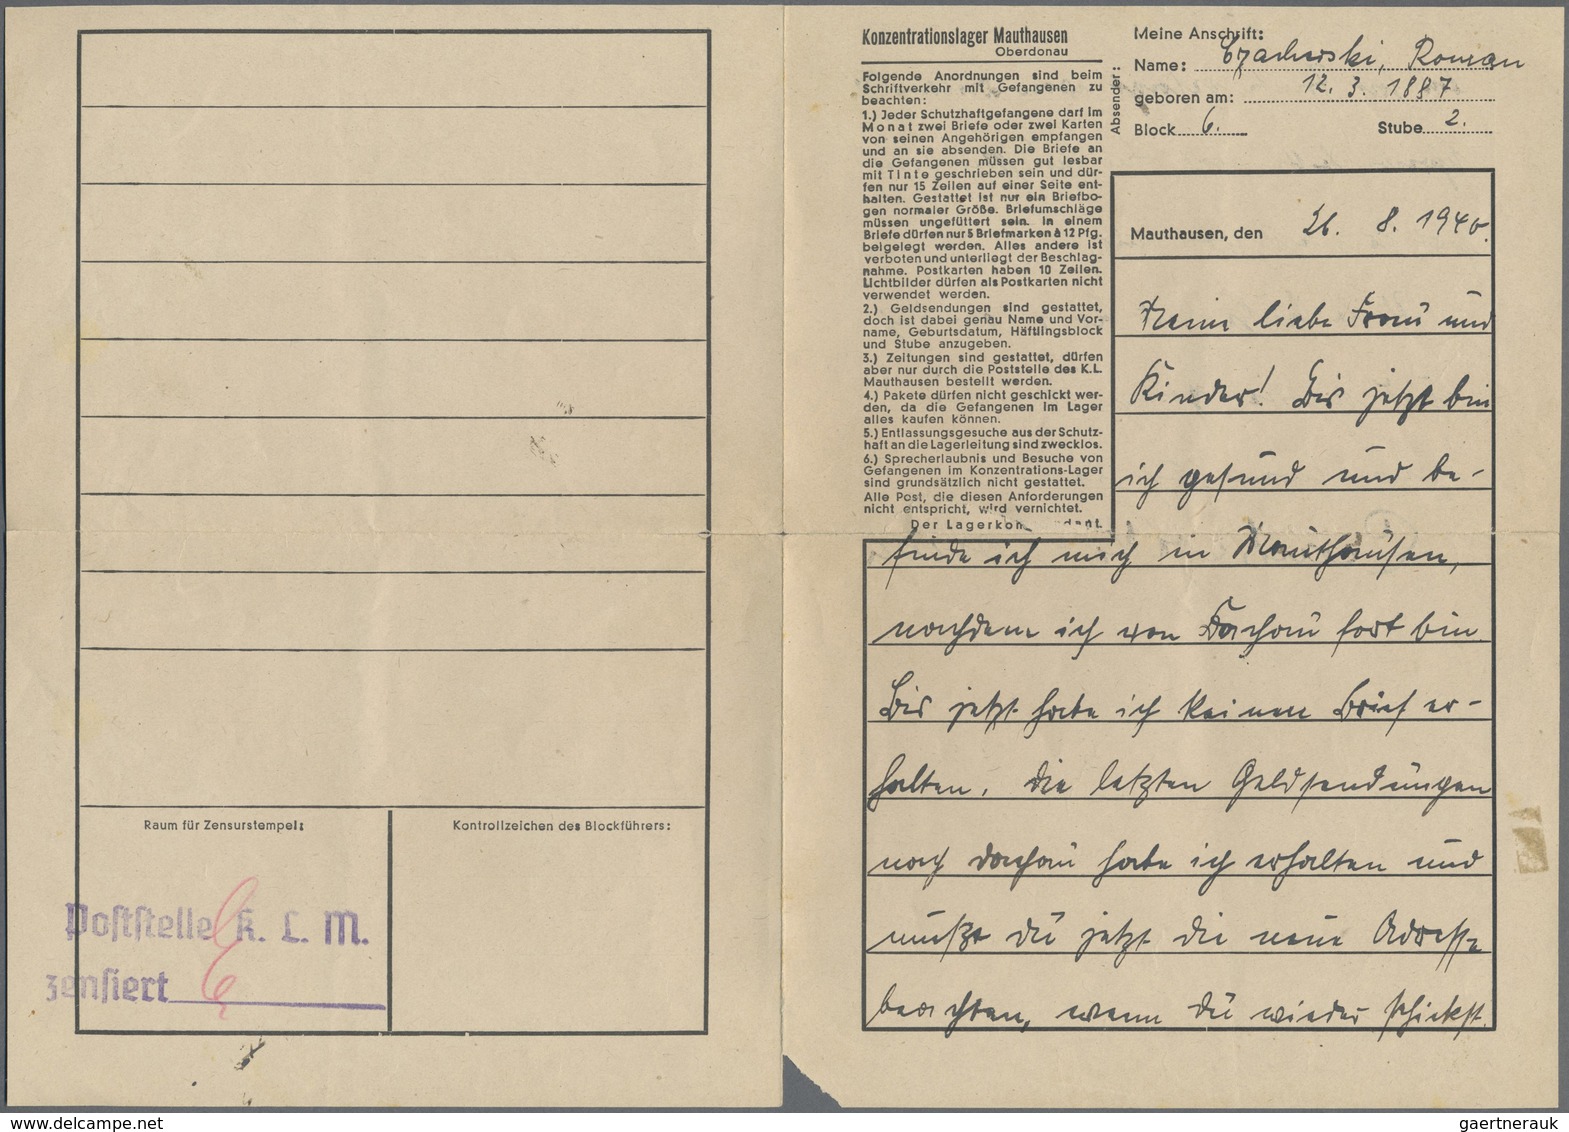 Raum für Zensurstempel:
Kontrollzeichen des Blockführers:
Poststelle K. L. M.
zensiert
Konzentrationslager Mauthausen
Oberdonau
Folgende Anordnungen sind beim
Schriftverkehr mit Gefangenen zu
beachten:
1.) Jeder Schutzhaftgefangene darf im
Monat zwei Briefe oder zwei Karten
von seinen Angehörigen empfangen
und an sie absenden. Die Briefe an
die Gefangenen müssen gut lesbar
mit Tinte geschrieben sein und dür-
fen nur 15 Zeilen auf einer Seite ent-
halten. Gestattet ist nur ein Briefbo-
gen normaler Größe. Briefumschläge
müssen ungefüttert sein. In einem
Briefe dürfen nur 5 Briefmarken à 12 Pfg.
beigelegt werden. Alles andere ist
verboten und unterliegt der Beschlag-
nahme. Postkarten haben 10 Zeilen.
Lichtbilder dürfen als Postkarten nicht
verwendet werden.
2.) Geldsendungen sind gestattet,
doch ist dabei genau Name und Vor-
name, Geburtsdatum, Häftlingsblock
und Stube anzugeben.
3.) Zeitungen sind gestattet, dürfen
aber nur durch die Poststelle des K.L.
Mauthausen bestellt werden.
4.) Pakete dürfen nicht geschickt wer-
den, da die Gefangenen im Lager
alles kaufen können.
5.) Entlassungsgesuche aus der Schutz-
haft an die Lagerleitung sind zwecklos.
6.) Sprecherlaubnis und Besuche von
Gefangenen im Konzentrations-Lager
sind grundsätzlich nicht gestattet.
Alle Post, die diesen Anforderungen
nicht entspricht, wird vernichtet.
Der Lagerkon dant.
Absender:
Meine Anschrift:
Name: Roman
geboren am: 12. 3. 1887
Block 6. Stube 2.
Mauthausen, den 26. 8. 1940.
Meine liebe Frau und
Kinder! Bis jetzt bin
ich gesund und be-
finde ich mich in Mauthausen,
nachdem ich von Dachau fort bin.
Bis jetzt habe ich keinen Brief er-
halten. Die letzten Geldsendungen
nach Dachau habe ich erhalten und
mußt du jetzt die neue Adresse
beachten, wenn du wieder schickst.
Delcampe.net
gaertnerauk